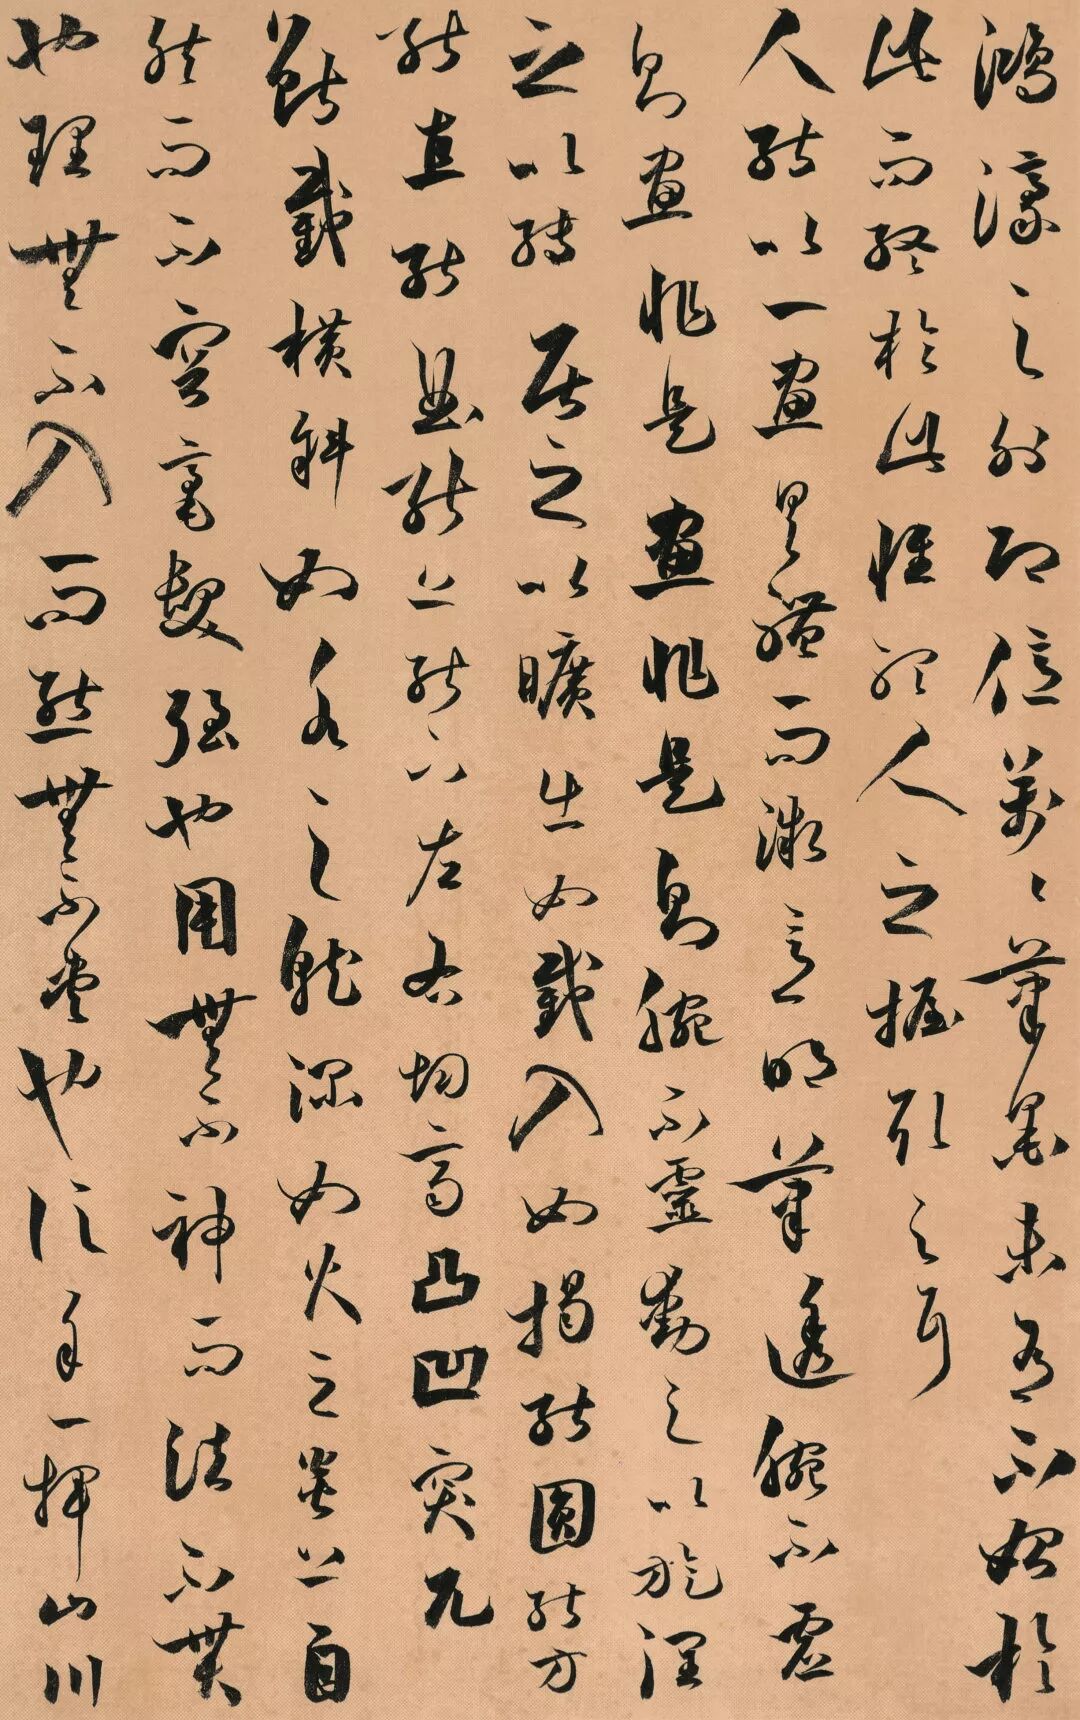 鴻濛之外即億萬萬筆墨未有不始於
此而終於此惟聽人之握取之耳
人能以一畫具體而微意明筆透腕不虛
則畫非是畫非是則腕不靈動之以旋潤
之以轉居之以曠出如截入如揭能圓能方
能直能曲能上能下左右均齊凸凹突兀
斷截橫斜如水之就深如火之炎上自
然而不容毫髮強也用無不神而法不貫
也理無不入而態無不盡也信手一揮山川